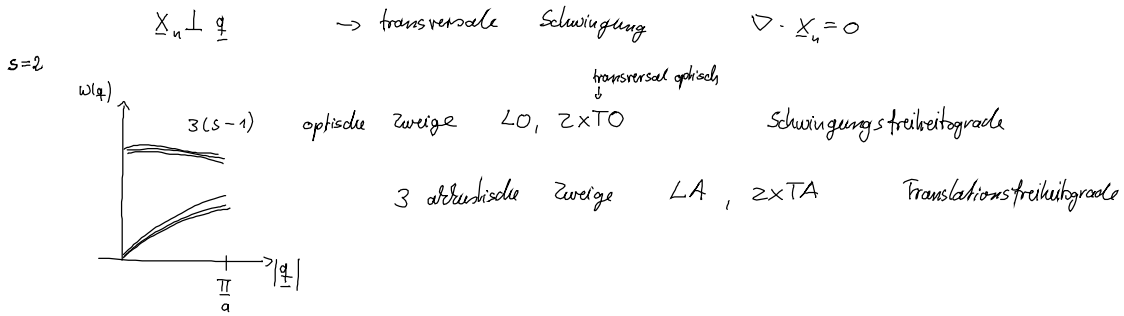 X_n ⊥ q → transversale Schwingung ∇ · X_n = 0
s=2
transversal optisch
↓
ω(q)
3(s-1) optische Zweige LO, 2xTO Schwingungsfreiheitsgrade
3 akkustische Zweige LA, 2xTA Translationsfreiheitsgrade
|q|
π/a